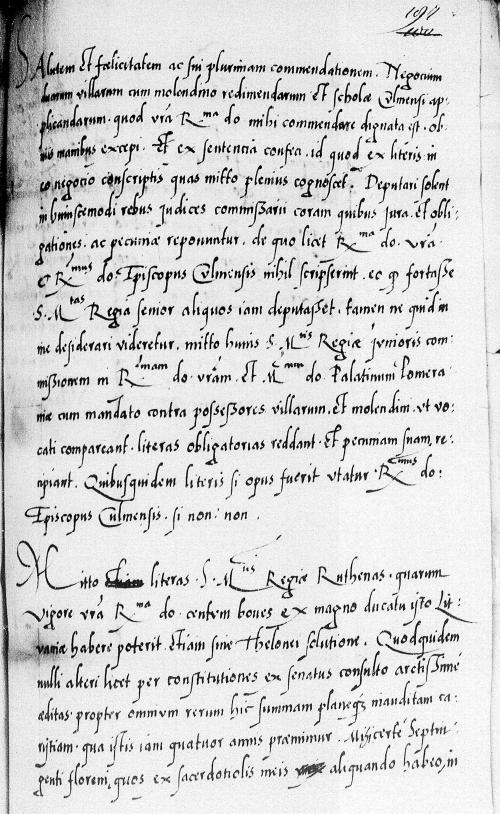 SAlutem Et fœlicitatem ac sui plurimam commendationem. Negocium
duarum villarum cum molendino redimendarum Et scholæ Culmensi ap-
plicandarum. quod vrã Rma do mihi commendare dignata est. ob-
uiis manibus excepi. Et ex sentencia confeci. id quod ex literis in
eo negocio conscriptis quas mitto plenius cognoscet. Deputari solent
in huiuscemodi rebus judices commissarii coram quibus jura. Et obli-
gationes. ac pecuniæ reponuntur. de quo licet Rma do. vrã.
Et Rmus do. Episcopus Culmensis nihil scripserint. eo q fortasse
.S. Mtas Regia senior aliquos iam deputasset. tamen ne quid in
me desiderari videretur. mitto huius .S. Mtis Regiæ junioris com-
missionem in Rmam do. vrãm. Et Mcum do. Palatinum Pomera
niæ cum mandato contra possessores villarum. Et molendini. vt vo-
cati compareant. literas obligatorias reddant. Et pecuniam suam, re-
cipiant. Quibusquidem literis si opus fuerit vtatur. Rmus do:
Episcopus Culmensis. si non: non.
Mitto literas .S. Mtis Regiæ Ruthenas. quarum
vigore vrã Rma do. centum boues ex magno ducatu isto Lit-
vaniæ habere poterit. Etiam sine Thelonei solutione. Quodquidem
nulli alteri licet per constitutiones ex senatus consulto arctissime
æditas. propter omnium rerum hic summam planeq inauditam ca-
ristiam. qua istis iam quatuor annis præmimur. certe Septin-
genti floreni, quos ex sacerdotiolis meis aliquando habeo, in